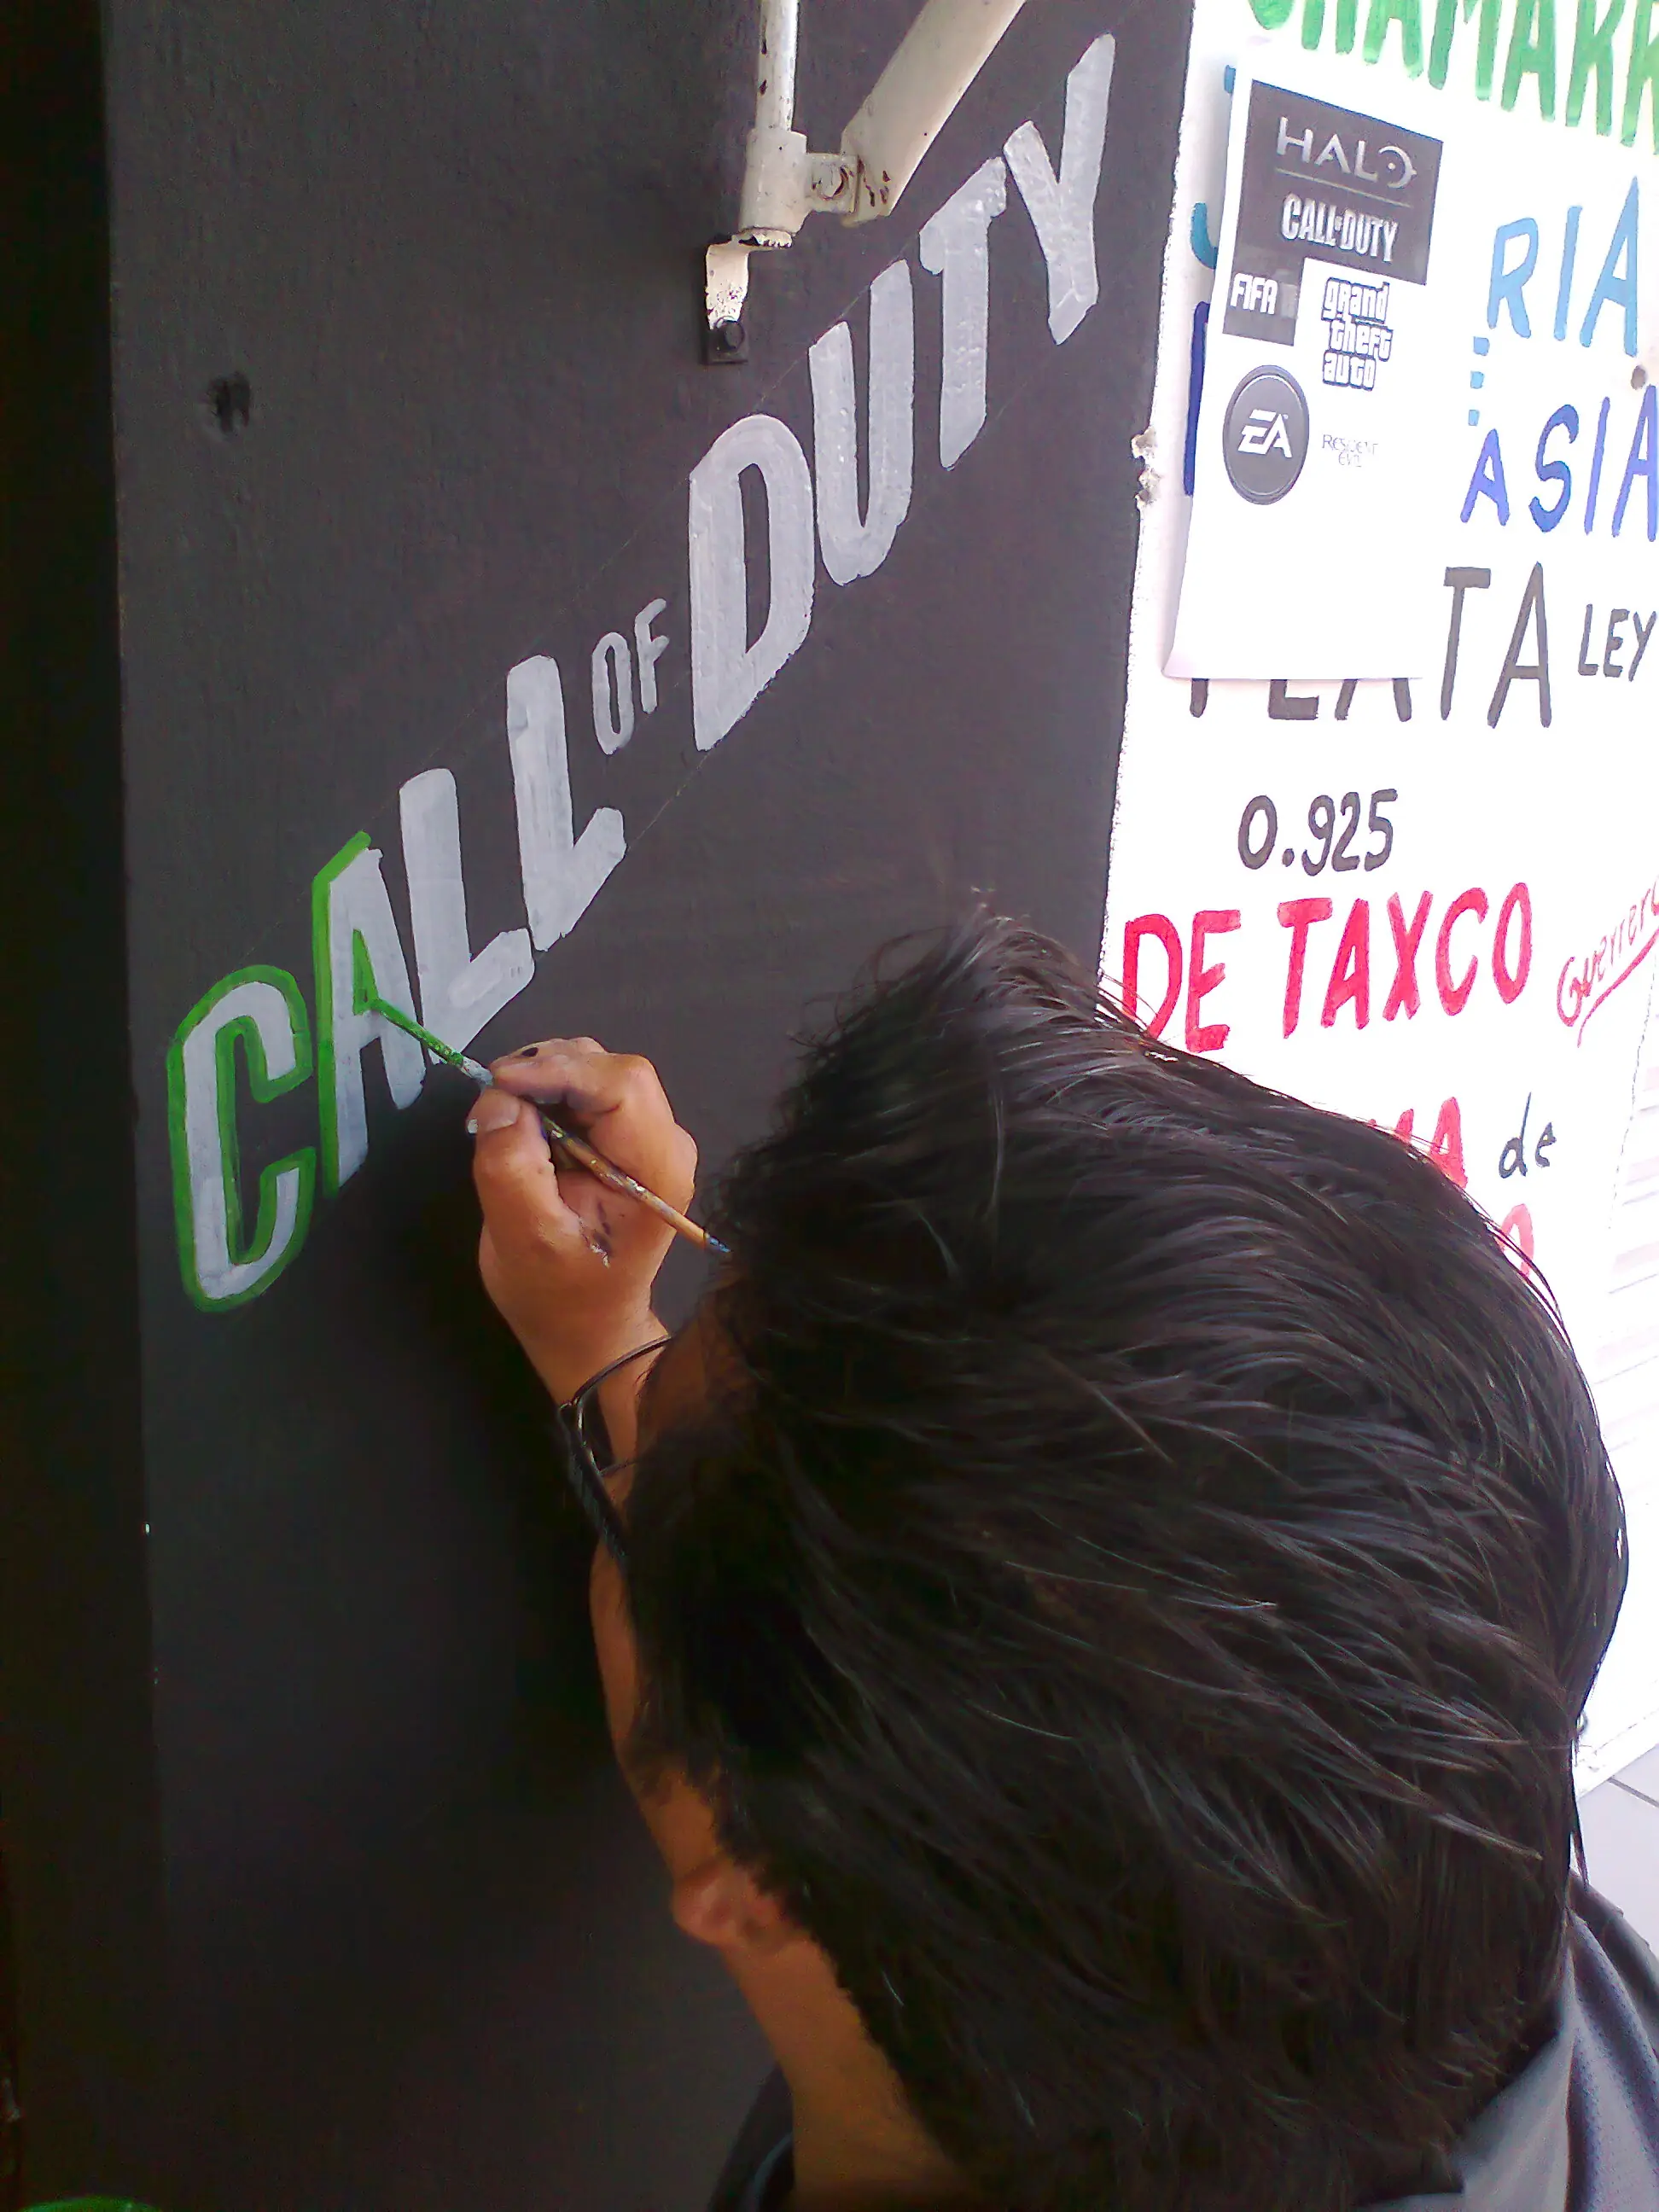 CALL OF DUTY
HALO
CALL OF DUTY
FIFA
grand
theft
auto
EA
RESIDENT
EVIL
RIA
ASIA
PLATA LEY
0.925
DE TAXCO
Guerrero
de